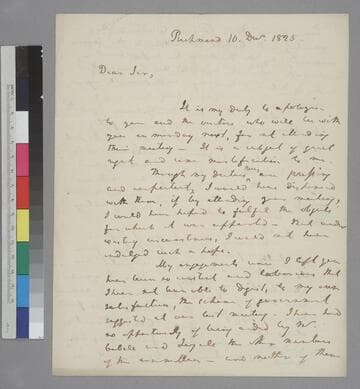 Richmond 16. Decr. 1825
Dear Sir,
It is my duty to apologise
to you and the visitors who will be with
you on monday next, for not attending
their meeting — It is a subject of great
regret and some mortification to me.
Though my duties here are pressing
and important, I would have dispensed
with them, if by attending your meeting,
I could have hoped to fulfil the objects
for which it was appointed — But under
existing circumstances, I could not have
indulged such a hope.
My engagements since I left you
have been so constant and laborious that
I have not been able to digest, to my own
satisfaction, the scheme of government
suggested at our last meeting. I have had
no opportunity of being aided by Mr.
and the other members
of the committee — and neither of them